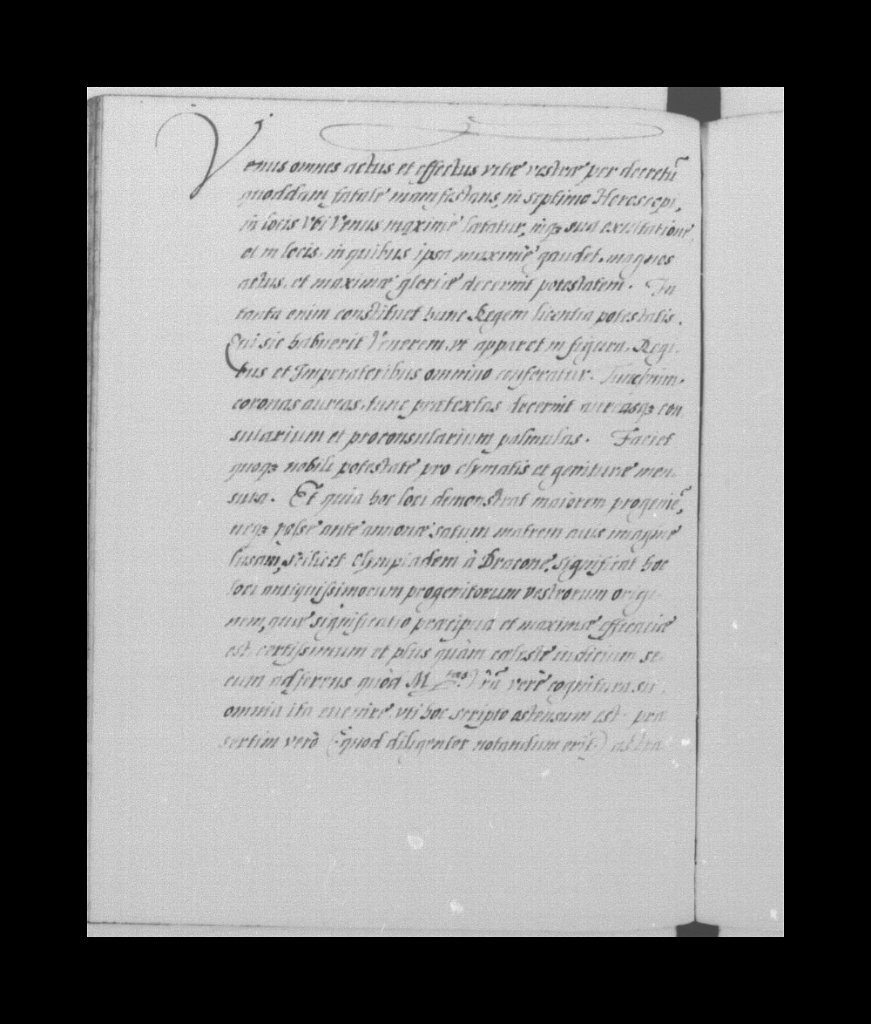 Venus omnes actus et effectus vitæ vestræ per decretũ
quoddam fatale manifestans, in septimo Horoscopi,
in locis vbi Venus maximè lætatur, inqꝫ sua exultatione,
et in locis, in quibus ipsa maximè gaudet, magnos
actus, et maximæ gloriæ decernit potestatem. In
tanta enim constituet hunc Regem licentia potestatis.
Qui sic habuerit Venerem, vt apparet in figura, Regi-
bus et Imperatoribus omnino conferatur.
coronas aureas, tunc prætextas decernit aureasqꝫ con
sularium et proconsularium palmulas. Faciet
quoqꝫ nobili potestate pro clymatis et genituræ men
sura. Et quia hoc loci demonstrat maiorem progeniẽ,
neqꝫ ante annonæ satum matrem eius imagine
lusam, scilicet Olympiadem à Dracone, significat hoc
loci antiquissimorum progenitorum vestrorum origi-
nem, quæ significatio præcipua et maximæ efficaciæ
est certissimum et plus quàm cæleste iudicium se-
cum adferens quòd M.tas Vrã verè cognitura sit,
omnia ita euenire, vti hoc scripto ostensum est præ
sertim verò (quod diligenter notandum erit) astra